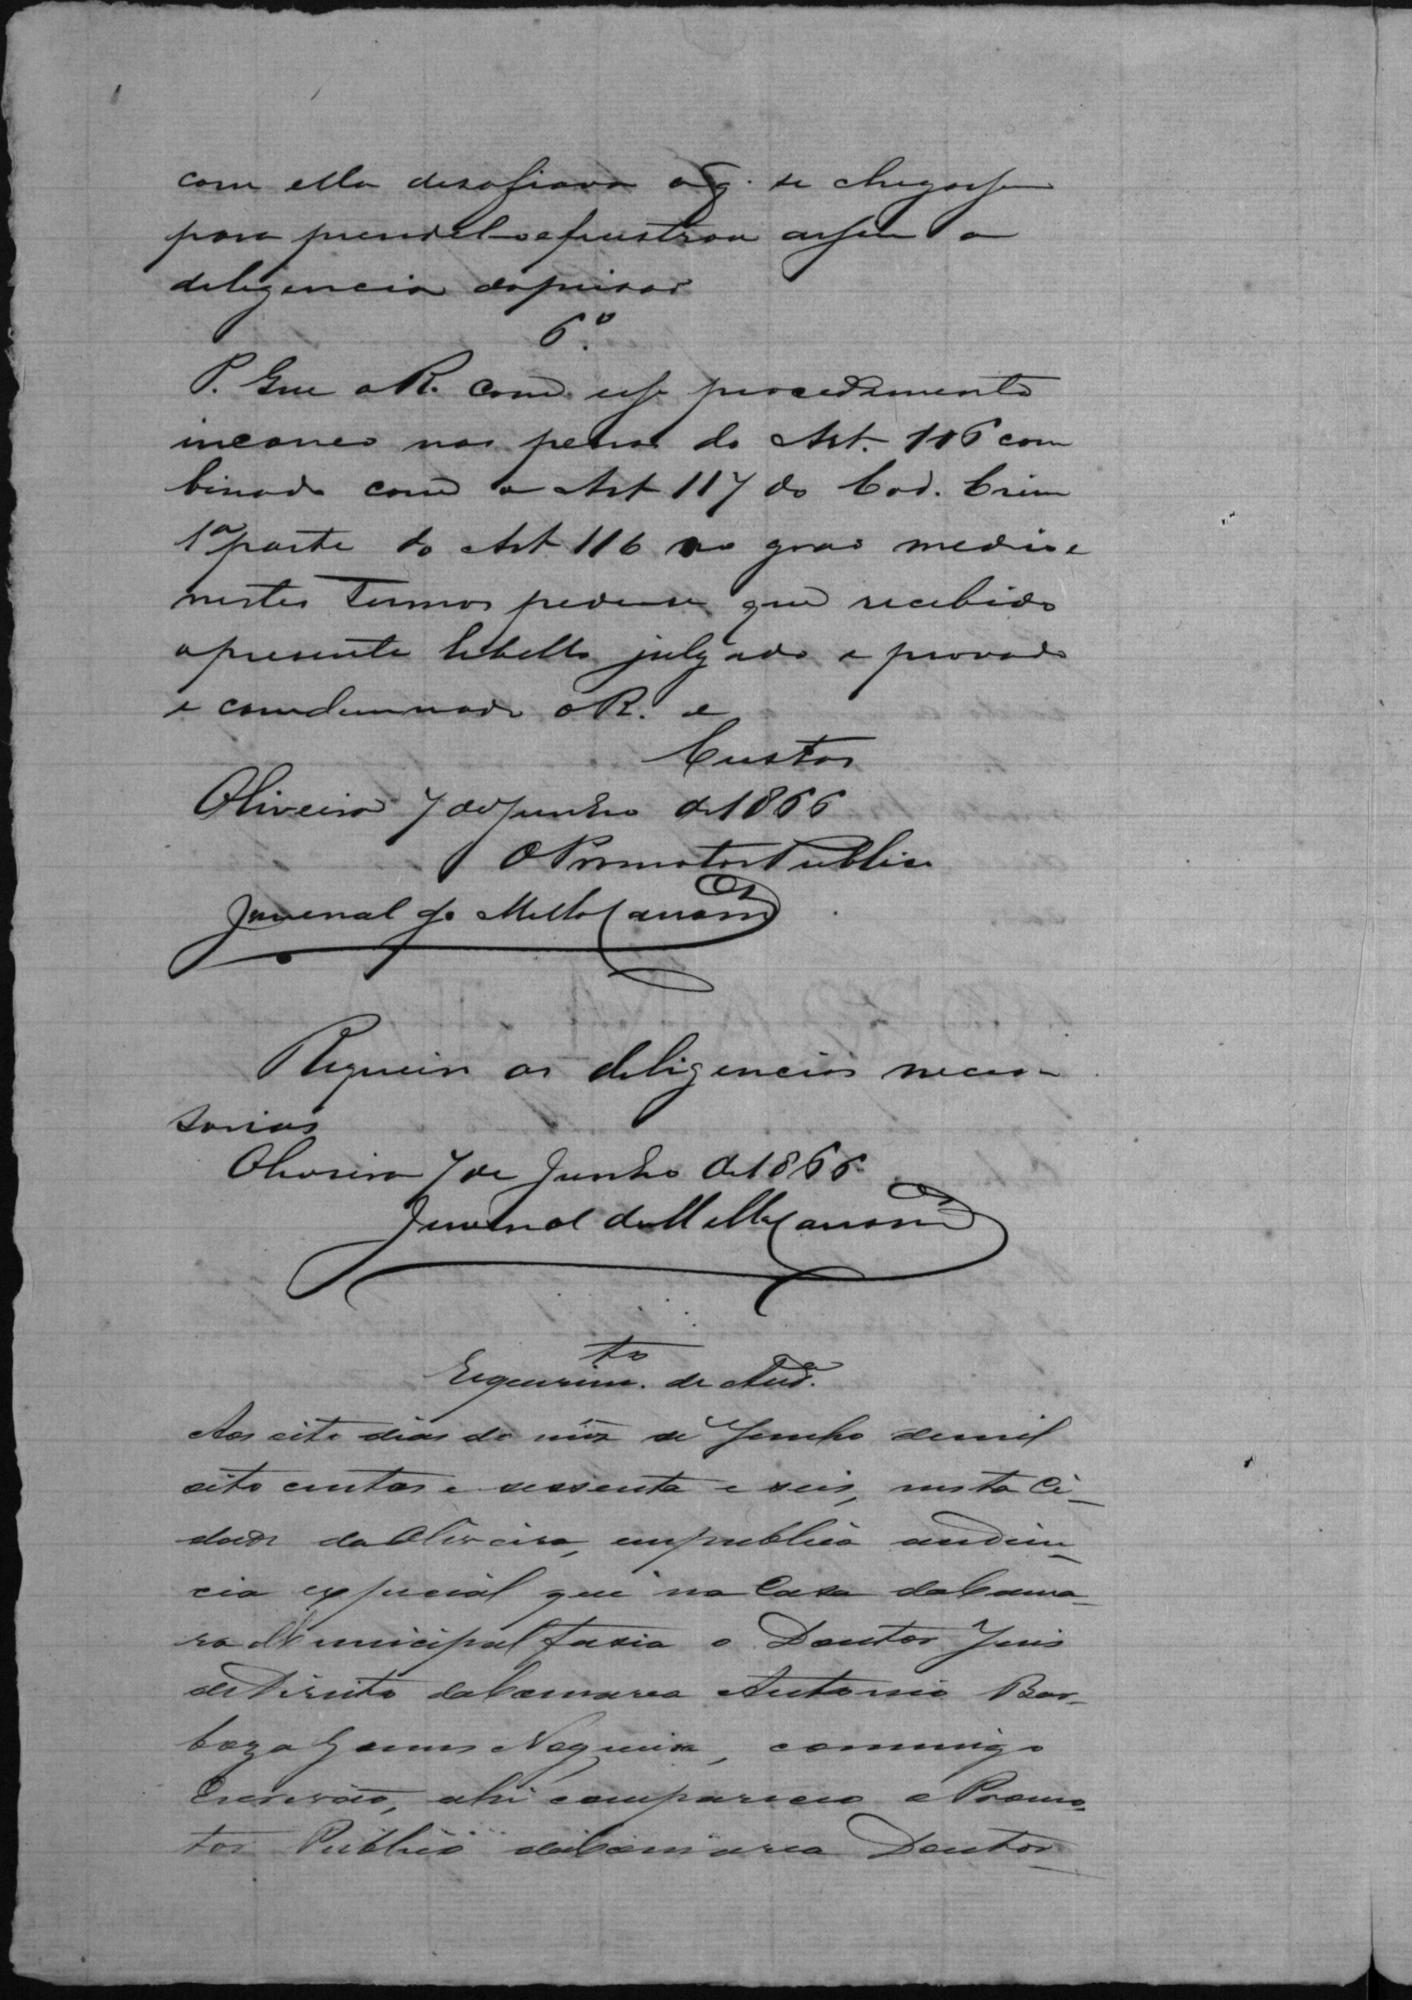 com ella desafiava a q. se chegassem
para prendel-o e frustrou assim a
deligencia da prisão
6.º
P. Que o R. com esse procedimento
incorreo nas penas do Art. 116 com
binado com o Art 117 do Cod. Crim
1ª parte do Art 116 no grao medio e
nestes Termos pede-se que recebido
o presente libello julgado e provado
e condemnado o R. e
Custas
Oliveira 7 de Junho de 1866
O Promotor Publico
Juvenal de Mello Carramª
Requeiro as deligencias neces-
sarias
Oliveira 7 de Junho de 1866
Juvenal de Mello Carramª
Requerim.to de Aud.ª
Aos oito dias do mez de Junho de mil
oito centos e sessenta e seis, nesta Ci-
dade da Oliveira, em publica audien-
cia especial que na Casa da Cama-
ra Municipal fasia o Doutor Juis
de Direito da Comarca Antonio Bar-
boza Gomes Nogueira, commigo
Escrivão, ahi compareceo o Promo-
tor Publico da Comarca Doutor